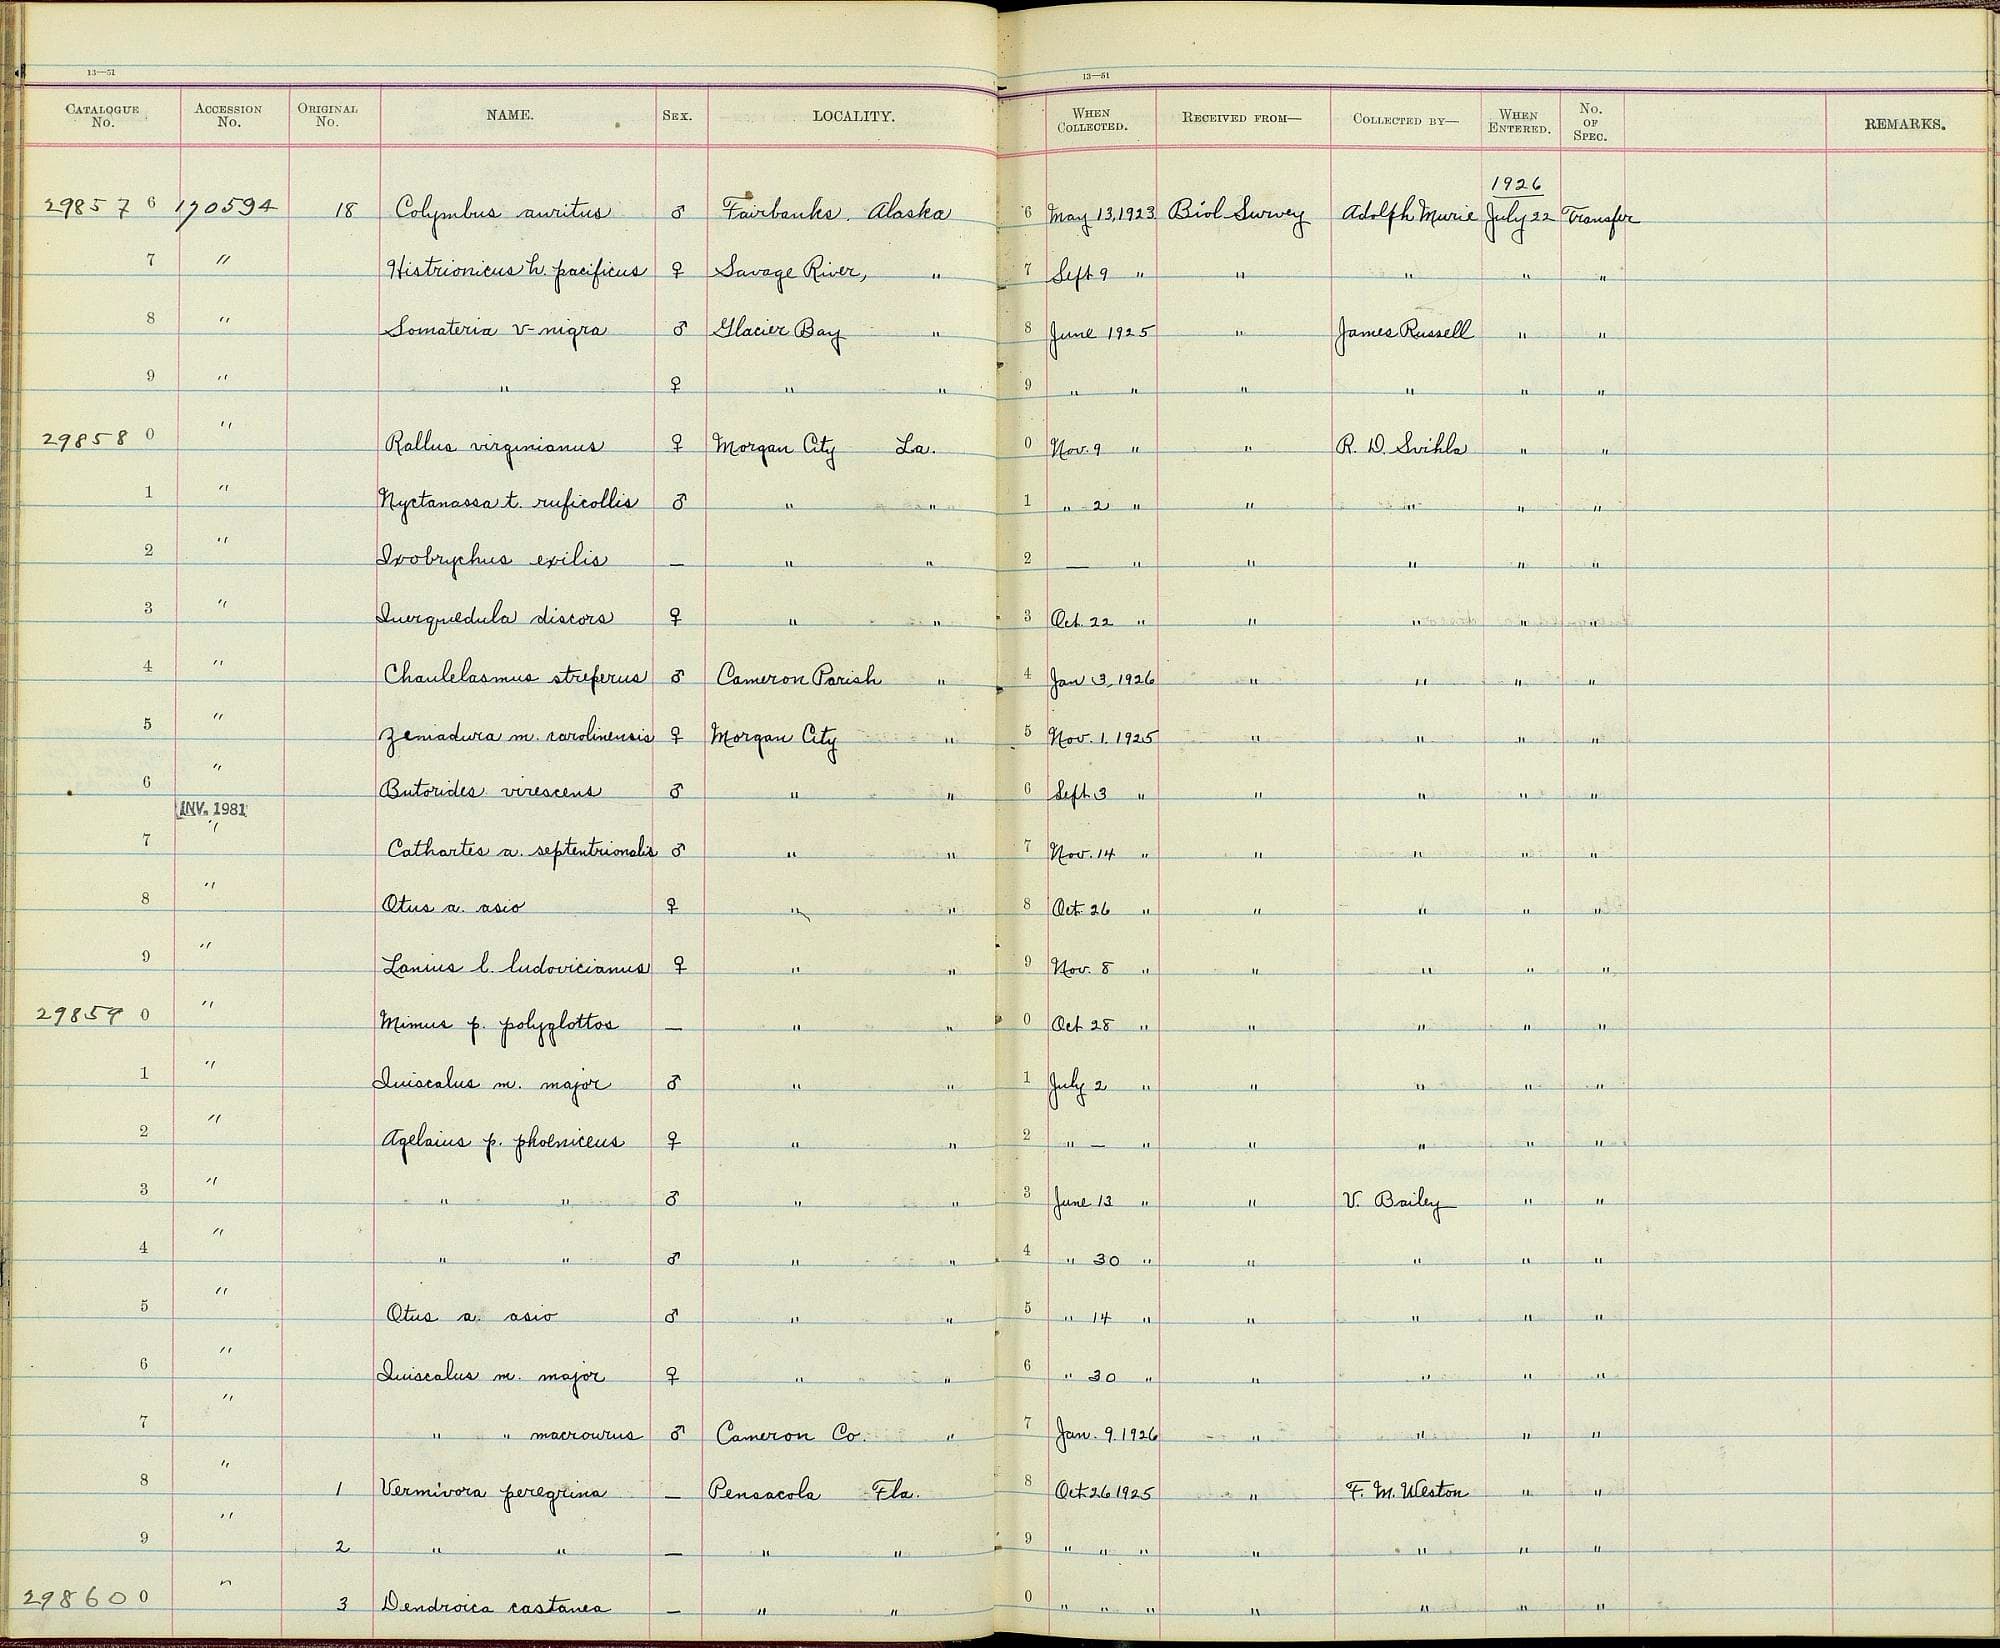 13—51
13—51
CATALOGUE No. ACCESSION No. ORIGINAL No. NAME. SEX. LOCALITY. WHEN COLLECTED. RECEIVED FROM— COLLECTED BY— WHEN ENTERED. No. OF SPEC. REMARKS.
1926
29857 6 170594 18 Colymbus auritus ♂ Fairbanks. Alaska 6 May 13, 1923 Biol Survey Adolph Murie July 22 Transfer
7 " Histrionicus h. pacificus ♀ Savage River, " 7 Sept 9 " " " " "
8 " Somateria v-nigra ♂ Glacier Bay " 8 June 1925 " James Russell " "
9 " " ♀ " " 9 " " " " " "
29858 0 " Rallus virginianus ♀ Morgan City La. 0 Nov. 9 " " R. D. Svihla " "
1 " Nyctanassa t. ruficollis ♂ " " 1 " 2 " " " " "
2 " Ixobrychus exilis — " " 2 — " " " " "
3 " Querquedula discors ♀ " " 3 Oct. 22 " " " " "
4 " Chaulelasmus streperus ♂ Cameron Parish " 4 Jan 3, 1926 " " " "
5 " Zeniadura m. carolinensis ♀ Morgan City " 5 Nov. 1. 1925 " " " "
6 " Butorides virescens ♂ " " 6 Sept 3 " " " " "
INV. 1981
7 " Cathartes a. septentrionalis ♂ " " 7 Nov. 14 " " " " "
8 " Otus a. asio ♀ " " 8 Oct. 26 " " " " "
9 " Lanius l. ludovicianus ♀ " " 9 Nov. 8 " " " " "
29859 0 " Mimus p. polyglottos — " " 0 Oct 28 " " " " "
1 " Quiscalus m. major ♂ " " 1 July 2 " " " " "
2 " Agelaius p. phoeniceus ♀ " " 2 " — " " " " "
3 " " " ♂ " " 3 June 13 " " V. Bailey " "
4 " " " ♂ " " 4 " 30 " " " " "
5 " Otus a. asio ♂ " " 5 " 14 " " " " "
6 " Quiscalus m. major ♀ " " 6 " 30 " " " " "
7 " " " macrourus ♂ Cameron Co. " 7 Jan. 9. 1926 " " " "
8 " 1 Vermivora peregrina — Pensacola Fla. 8 Oct 26 1925 " F. M. Weston " "
9 " 2 " " — " " 9 " " " " " " "
29860 0 " 3 Dendroica castanea — " " 0 " " " " " " "